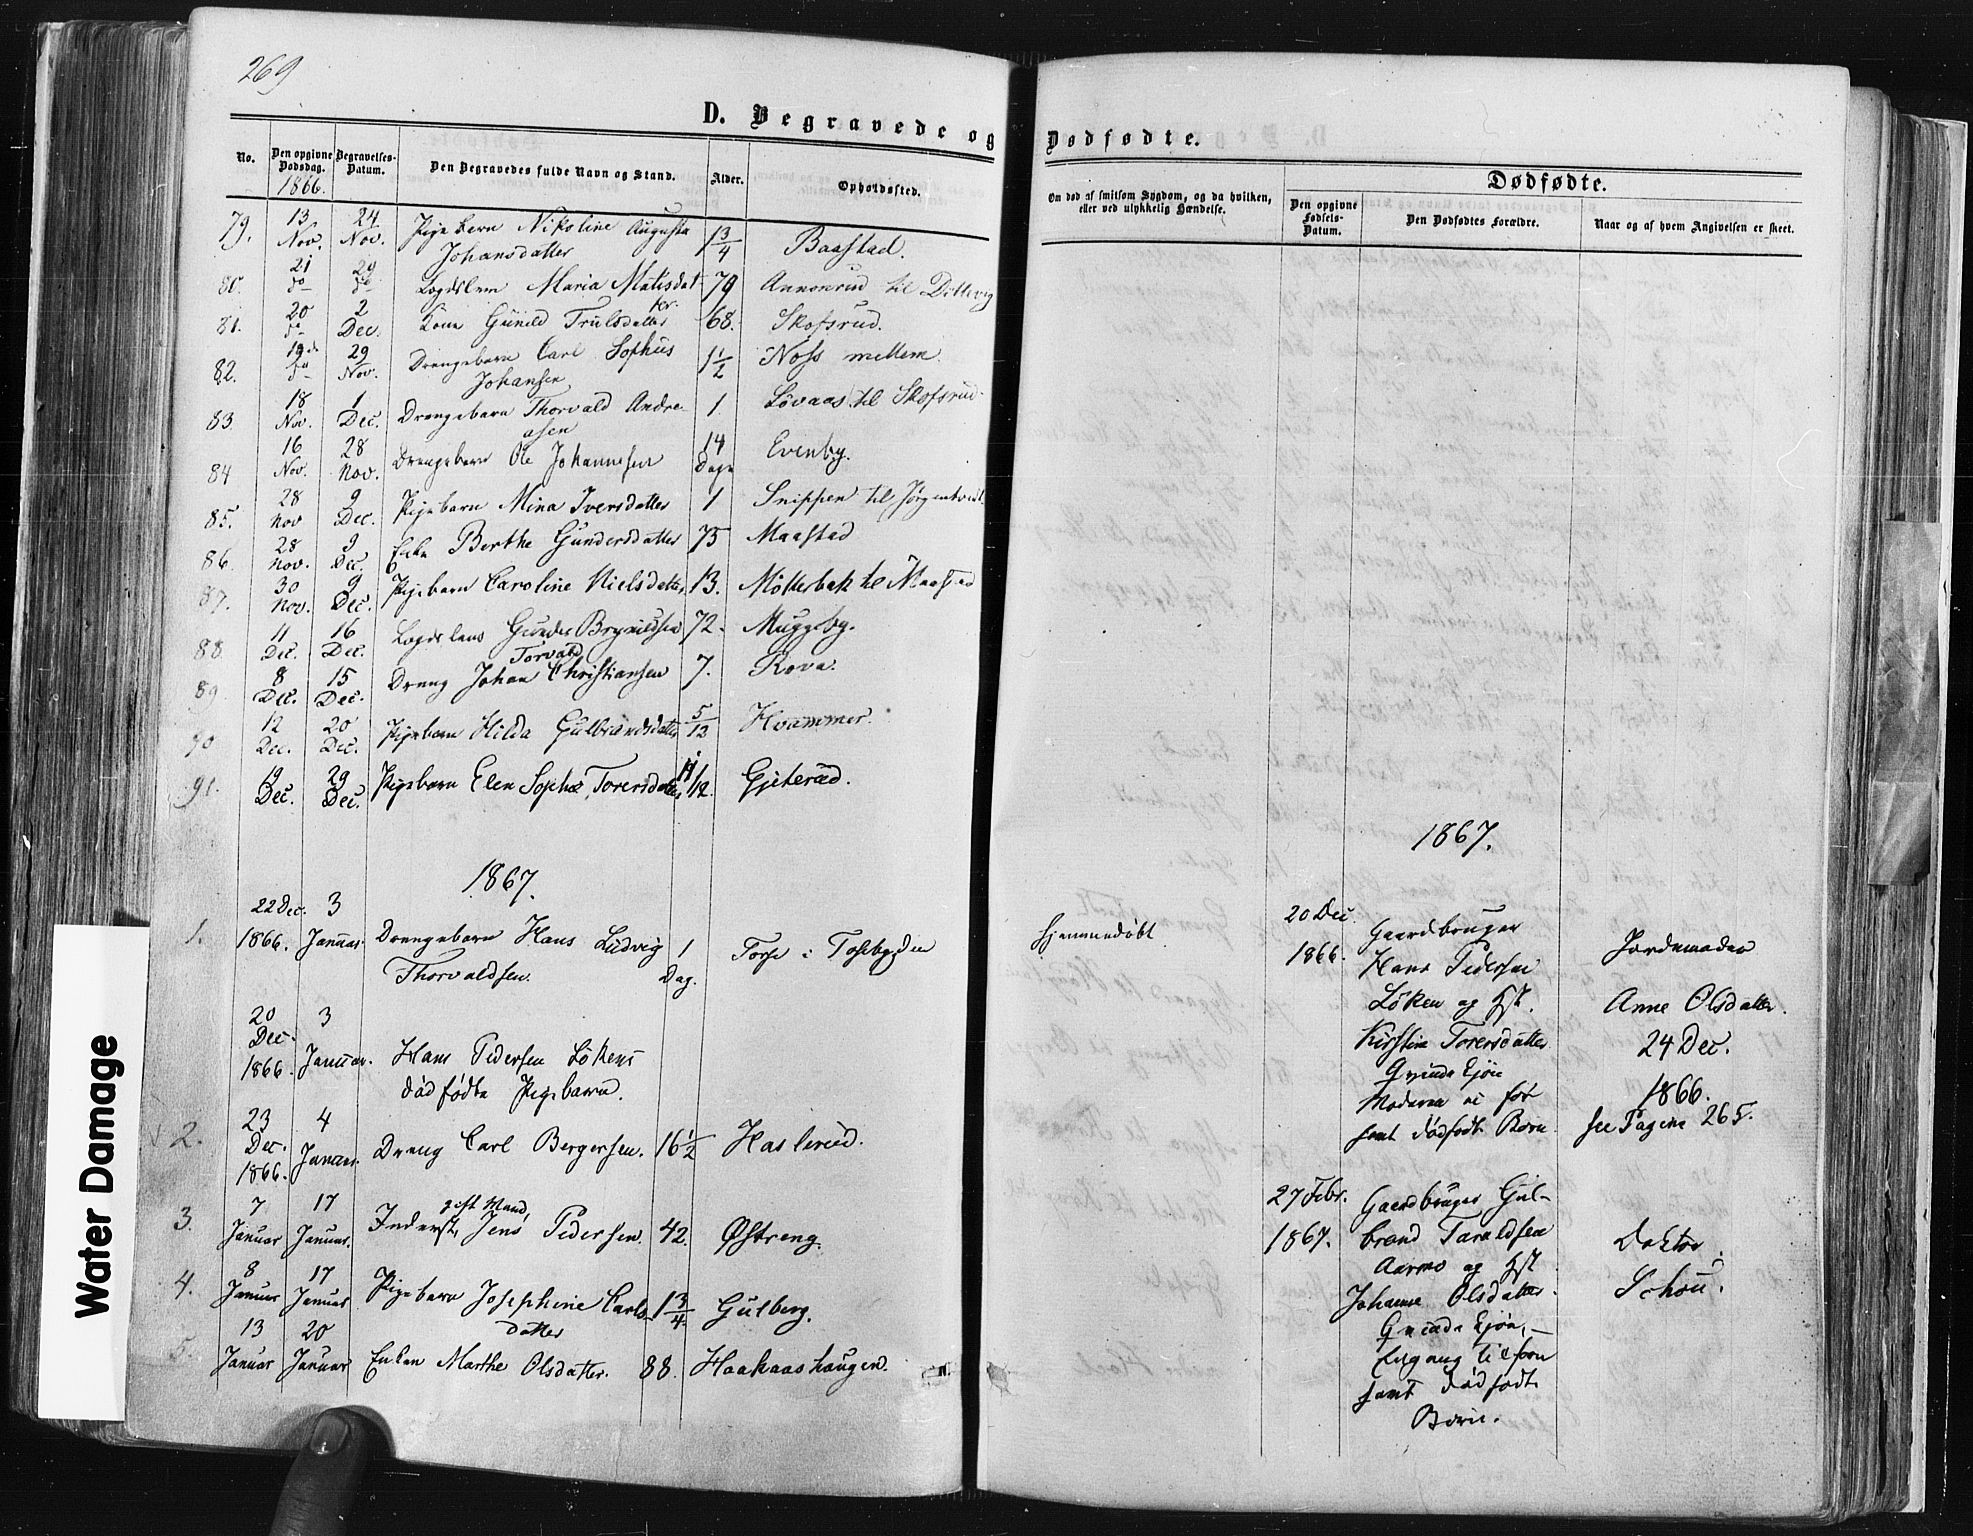 269
D. Begravede og Dødfødte.
No. Den opgivne Dødsdag. 1866. Begravelses-Datum. Den Begravedes fulde Navn og Stand. Alder. Opholdssted.
Om død af smitsom Sygdom, og da hvilken, eller ved ulykkelig Hændelse.
Dødfødte.
Den opgivne Fødsels-Datum. Den Dødfødtes Forældre. Naar og af hvem Angivelsen er skeet.
79. 13 Nov. 24 Nov. Pigebarn Nikoline Augusta 1 3/4 Baastad.
Johansdatter
80. 21 do 29 do Logdslem Maria Matisdat- 79 Annonrud til Dillevig
ter.
81. 20 do 2 Dec. Kone Gunild Trulsdatter 68. Skofsrud.
82. 19de do 29 Nov. Drengebarn Carl Sophus 1 1/2 Noss mellem
Johansen
83. 18 Nov. 1 Dec. Drengebarn Thorvald Andre- 1 Lövaas til Skofsrud.
asen
84 16 Nov. 28 Nov. Drengebarn Ole Johannesen 14 Dage Evenby.
85. 28 Nov 9 Dec. Pigebarn Mina Iversdatter 1 Snippen til Jörgentvedt
86. 28 Nov. 9 Dec. Enke Berthe Gundersdatter 75 Maastad
87. 30 Nov. 9 Dec. Pigebarn Caroline Nielsdatter 13. Möllerbak til Maastad
88. 11 Dec. 16 Dec. Logdslem Gunder Brynildsen 72. Muggeby.
Torvald
89. 8 Dec. 15 Dec. Dreng Johan Christiansen 7. Kova.
90 12 Dec. 20 Dec. Pigebarn Hilda Gulbrandsdatter 5/12 Hvammer.
91. 19 Dec. 29 Dec. Pigebarn Elen Sophie Torersdatter 11/12. Gjeterud.
1867.
1. 22 Dec. 1866. 3 Januar. Drengebarn Hans Ludvig 1 Dag. Torp i Tosebygden
Thorvaldsen.
20 Dec. 1866. 3 Januar. Hans Pedersen Lökens
dödfødte Pigebarn.
2. 23 Dec. 1866. 4 Januar. Dreng Carl Bergersen. 16 1/2 Haslerud.
gift Mand,
3. 7 Januar 17 Januar. Inderst, Jens Pedersen. 42. Østreng.
4. 8 Januar 17 Januar Pigebarn Josephine Carls- 1 3/4 Gulberg.
datter
5. 13 Januar 20 Januar Enken Marthe Olsdatter. 88. Haakaashaugen.
1867.
hjemmedöbt
20 Dec. 1866.
Gaardbruger
Hans Pedersen
Löken og Hst.
Kirstine Torersdatter
Qvinde Kjøn
Moderen ei før
havt dödfødt Børn
Jordemoder
Anne Olsdatter.
24 Dec.
1866.
see Pagina 265.
27 Febr.
1867.
Gaardbruger Gul-
brand Taraldsen
Aarmo og Hst
Johanne Olsdatter.
Qvinde Kjøn, –
Engang tilforn
havt dödfødt
Børn.
Doktor
Schou.
Water Damage